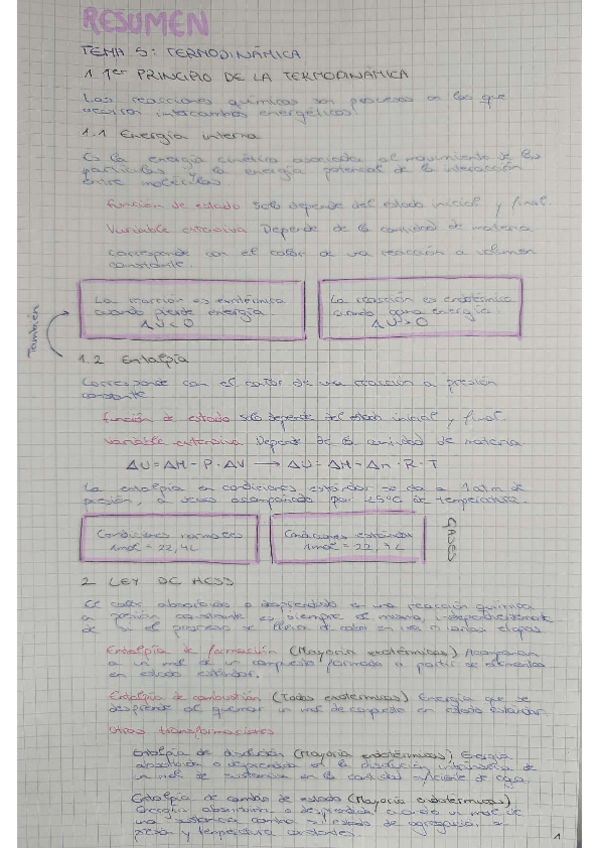 RESUMEN
TEMA 5: TERMODINÁMICA
1 1er PRINCIPIO DE LA TERMODINÁMICA
Las reacciones químicas son procesos en los que
ocurren intercambios energéticos.
1.1 Energía interna
Es la energía cinética asociada al movimiento de las
partículas y la energía potencial de la interacción
entre moléculas.
función de estado Solo depende del estado inicial y final.
Variable extensiva Depende de la cantidad de materia
Corresponde con el calor de una reacción a volumen
constante.
La reacción es exotérmica
cuando pierde energía.
ΔU < 0
La reacción es endotérmica
cuando gana energía.
ΔU > 0
También
1.2 Entalpía
Corresponde con el calor de una reacción a presión
constante
función de estado solo depende del estado inicial y final.
Variable extensiva Depende de la cantidad de materia
ΔU = ΔH - P · ΔV → ΔU = ΔH - Δn · R · T
La entalpía en condiciones estándar se da a 1 atm de
presión, a veces acompañado por 25ºC de temperatura.
Condiciones normales
1mol = 22,4L
Condiciones estándar
1mol = 22,4L
GASES
2 LEY DE HESS
El calor absorbido o desprendido en una reacción química
a presión constante es siempre el mismo, independientemente
de si el proceso se lleva de cabo en una o varias etapas.
Entalpía de formación (Mayoría exotérmicas)
a un mol de un compuesto formado a partir de elementos
en estado estándar.
Entalpía de combustión (Todas exotérmicas) Energía que se
desprende al quemar un mol de compuesto en estado estándar
Otras transformaciones
Entalpía de disolución (Mayoría endotérmicas) Energía
absorbida o desprendida en la disolución de
un mol de sustancia en la cantidad suficiente de agua.
Entalpía de cambio de estado (Mayoría endotérmicas)
Energía absorbida o desprendida cuando un mol de
una sustancia cambia su estado de agregación a
presión y temperatura constantes.
1